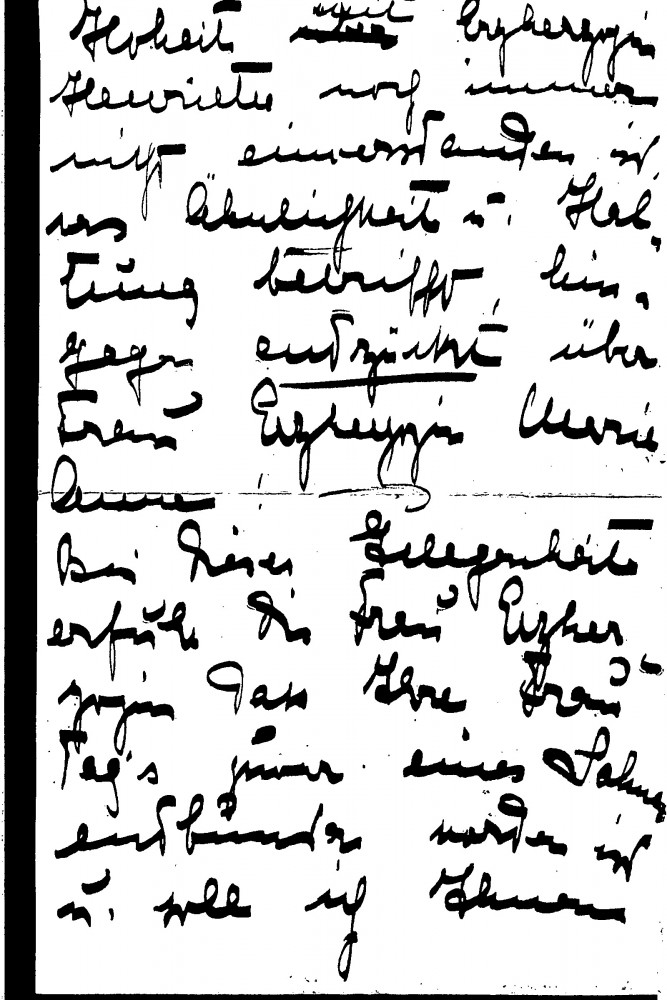 Hoheit mit Erzherzogin
Henriette noch immer
nicht einverstanden ist
was Ähnlichkeit u. Hal-
tung betrifft, hin-
gegen entzückt über
Frau Erzherzogin Marie
Anne!
Bei dieser Gelegenheit
erfuhr die Frau Erzher
zogin dass Ihre Frau
Tag's zuvor eines Sohnes
entbunden worden ist
u. soll ich Ihnen